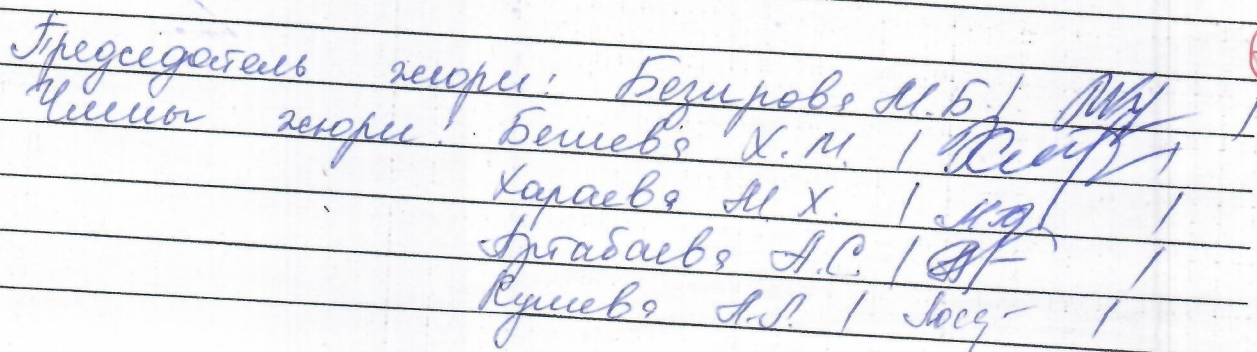 Председатель жюри: Безирова М.Б. / /
Члены жюри: Бешева Х.М. / /
Хараева М Х. / /
Артабаева А.С. / /
Кушева А.Л. / /